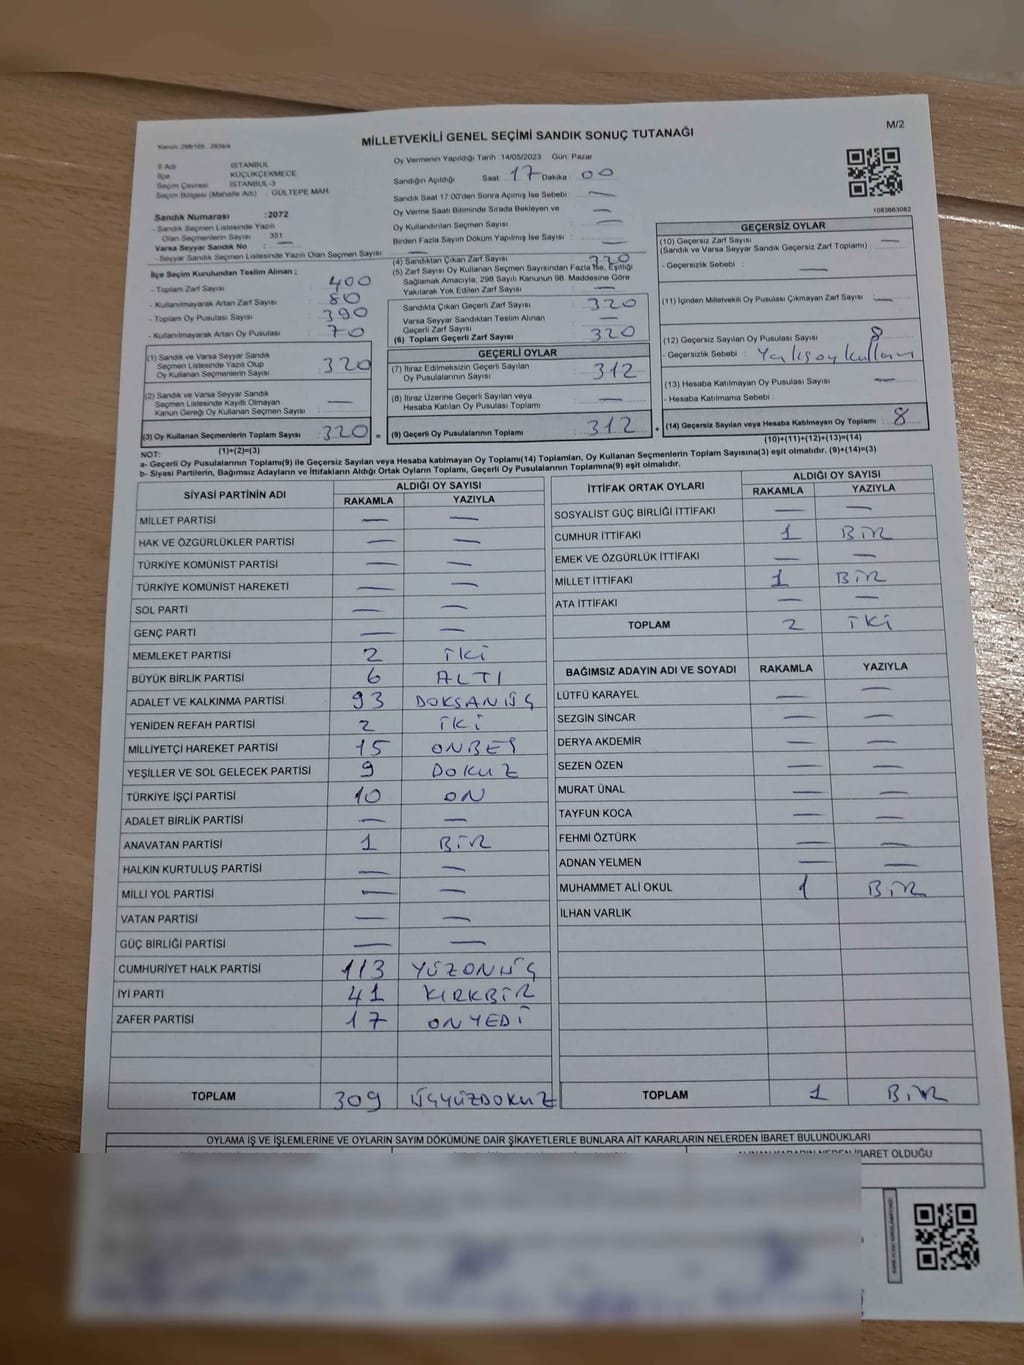 MİLLETVEKİLİ GENEL SEÇİMİ SANDIK SONUÇ TUTANAĞI
M/2
İl Adı İSTANBUL
İlçe KÜÇÜKÇEKMECE
Seçim Çevresi İSTANBUL-3
Seçim Bölgesi (Mahalle Adı) : GÜLTEPE MAH.
Sandık Numarası :2072
- Sandık Seçmen Listesinde Yazılı
Olan Seçmenlerin Sayısı 351
Varsa Seyyar Sandık No : —
- Seyyar Sandık Seçmen Listesinde Yazılı Olan Seçmen Sayısı : —
Oy Vermenin Yapıldığı Tarih :14/05/2023 Gün: Pazar
Sandığın Açıldığı Saat 17 Dakika 00
Sandık Saat 17.00'den Sonra Açılmış İse Sebebi : —
Oy Verme Saati Bitiminde Sırada Bekleyen ve —
Oy Kullandırılan Seçmen Sayısı : —
Birden Fazla Sayım Döküm Yapılmış İse Sayısı : —
1083663082
İlçe Seçim Kurulundan Teslim Alınan ;
- Toplam Zarf Sayısı 400
- Kullanılmayarak Artan Zarf Sayısı 80
- Toplam Oy Pusulası Sayısı 390
- Kullanılmayarak Artan Oy Pusulası 70
(1) Sandık ve Varsa Seyyar Sandık
Seçmen Listesinde Yazılı Olup
Oy Kullanan Seçmenlerin Sayısı 320
(2) Sandık ve Varsa Seyyar Sandık
Seçmen Listesinde Kayıtlı Olmayan
Kanun Gereği Oy Kullanan Seçmen Sayısı : —
(3) Oy Kullanan Seçmenlerin Toplam Sayısı 320 =
(1)+(2)=(3)
(4) Sandıktan Çıkan Zarf Sayısı 320
(5) Zarf Sayısı Oy Kullanan Seçmen Sayısından Fazla İse, Eşitliği
Sağlamak Amacıyla, 298 Sayılı Kanunun 98. Maddesine Göre
Yakılarak Yok Edilen Zarf Sayısı : —
Sandıkta Çıkan Geçerli Zarf Sayısı : 320
Varsa Seyyar Sandıktan Teslim Alınan
Geçerli Zarf Sayısı —
(6) Toplam Geçerli Zarf Sayısı 320
GEÇERLİ OYLAR
(7) İtiraz Edilmeksizin Geçerli Sayılan
Oy Pusulalarının Sayısı 312
(8) İtiraz Üzerine Geçerli Sayılan veya
Hesaba Katılan Oy Pusulası Toplamı —
(9) Geçerli Oy Pusulalarının Toplamı 312 +
GEÇERSİZ OYLAR
(10) Geçersiz Zarf Sayısı —
(Sandık ve Varsa Seyyar Sandık Geçersiz Zarf Toplamı)
- Geçersizlik Sebebi : —
(11) İçinden Milletvekili Oy Pusulası Çıkmayan Zarf Sayısı —
(12) Geçersiz Sayılan Oy Pusulası Sayısı 8
- Geçersizlik Sebebi :
(13) Hesaba Katılmayan Oy Pusulası Sayısı —
- Hesaba Katılmama Sebebi :
(14) Geçersiz Sayılan veya Hesaba Katılmayan Oy Toplamı 8
(10)+(11)+(12)+(13)=(14)
NOT:
a- Geçerli Oy Pusulalarının Toplamı(9) ile Geçersiz Sayılan veya Hesaba Katılmayan Oy Toplamı(14) Toplamları, Oy Kullanan Seçmenlerin Toplam Sayısına(3) eşit olmalıdır. (9)+(14)=(3)
b- Siyasi Partilerin, Bağımsız Adayların ve İttifakların Aldığı Ortak Oyların Toplamı, Geçerli Oy Pusulalarının Toplamına(9) eşit olmalıdır.
SİYASİ PARTİNİN ADI ALDIĞI OY SAYISI
RAKAMLA YAZIYLA
MİLLET PARTİSİ — —
HAK VE ÖZGÜRLÜKLER PARTİSİ — —
TÜRKİYE KOMÜNİST PARTİSİ — —
TÜRKİYE KOMÜNİST HAREKETİ — —
SOL PARTİ — —
GENÇ PARTİ — —
MEMLEKET PARTİSİ 2 İKİ
BÜYÜK BİRLİK PARTİSİ 6 ALTI
ADALET VE KALKINMA PARTİSİ 93 DOKSANÜÇ
YENİDEN REFAH PARTİSİ 2 İKİ
MİLLİYETÇİ HAREKET PARTİSİ 15 ONBEŞ
YEŞİLLER VE SOL GELECEK PARTİSİ 9 DOKUZ
TÜRKİYE İŞÇİ PARTİSİ 10 ON
ADALET BİRLİK PARTİSİ — —
ANAVATAN PARTİSİ 1 BİR
HALKIN KURTULUŞ PARTİSİ — —
MİLLİ YOL PARTİSİ — —
VATAN PARTİSİ — —
GÜÇ BİRLİĞİ PARTİSİ — —
CUMHURİYET HALK PARTİSİ 113 YÜZONÜÇ
İYİ PARTİ 41 KIRKBİR
ZAFER PARTİSİ 17 ONYEDİ
TOPLAM 309 ÜÇYÜZDOKUZ
İTTİFAK ORTAK OYLARI ALDIĞI OY SAYISI
RAKAMLA YAZIYLA
SOSYALİST GÜÇ BİRLİĞİ İTTİFAKI — —
CUMHUR İTTİFAKI 1 BİR
EMEK VE ÖZGÜRLÜK İTTİFAKI — —
MİLLET İTTİFAKI 1 BİR
ATA İTTİFAKI — —
TOPLAM 2 İKİ
BAĞIMSIZ ADAYIN ADI VE SOYADI RAKAMLA YAZIYLA
LÜTFÜ KARAYEL — —
SEZGİN SİNCAR — —
DERYA AKDEMİR — —
SEZEN ÖZEN — —
MURAT ÜNAL — —
TAYFUN KOCA — —
FEHMİ ÖZTÜRK — —
ADNAN YELMEN — —
MUHAMMET ALİ OKUL 1 BİR
İLHAN VARLIK
TOPLAM 1 BİR
OYLAMA İŞ VE İŞLEMLERİNE VE OYLARIN SAYIM DÖKÜMÜNE DAİR ŞİKAYETLERLE BUNLARA AİT KARARLARIN NELERDEN İBARET BULUNDUKLARI
ALINAN KARARIN NEDEN İBARET OLDUĞU